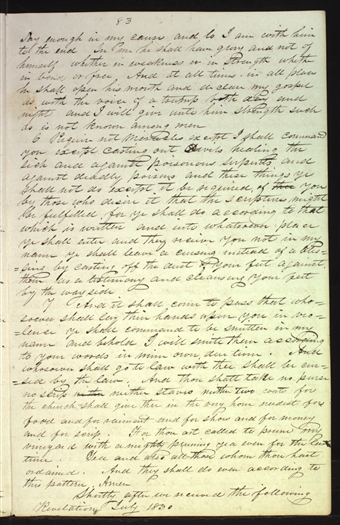 83
Lay enough in my cause and lo I am with him
to the end. In me he shall have glory and not of
himself whether in weakness or in strength whether
in bonds or free And at all times in all places
he shall open his mouth and declare my gospel
as with the voice of a trump both day and
night and I will give unto him strength such
as is not known among men
6 Require not Miracles except I shall command
you except casting out Devils healing the
sick and against poisonous serpents and
against deadly poisons and these things ye
shall not do except it be required of you
by those who desire it that the scriptures might
be fulfilled for ye shall do according to that
which is written and in whatsoever place
ye shall enter and they receive you not in my
name ye shall leave a cursing instead of a bles-
sing by casting off the dust of your feet against
them as a testimony and cleansing your feet
by the wayside
7 And it shall come to pass that who-
soever shall lay their hands upon you in vio-
lence ye shall command to be smitten in my
name and behold I will smite them according
to your words in mine own due time. And
whosoever shall go to law with thee shall be cur-
sed by the law. And thou shalt take no purse
no scrip neither staves neither two coats for
the church shall give thee in the very hour needest for
food and for raiment and for shoes and for money
and for scrip For thou art called to prune my
vineyard with a mighty pruning yea even for the last
time Yea and also all those whom thou hast
ordained. And they shall do even according to
this pattern Amen
Shortly after we received the following
Revelation July 1830